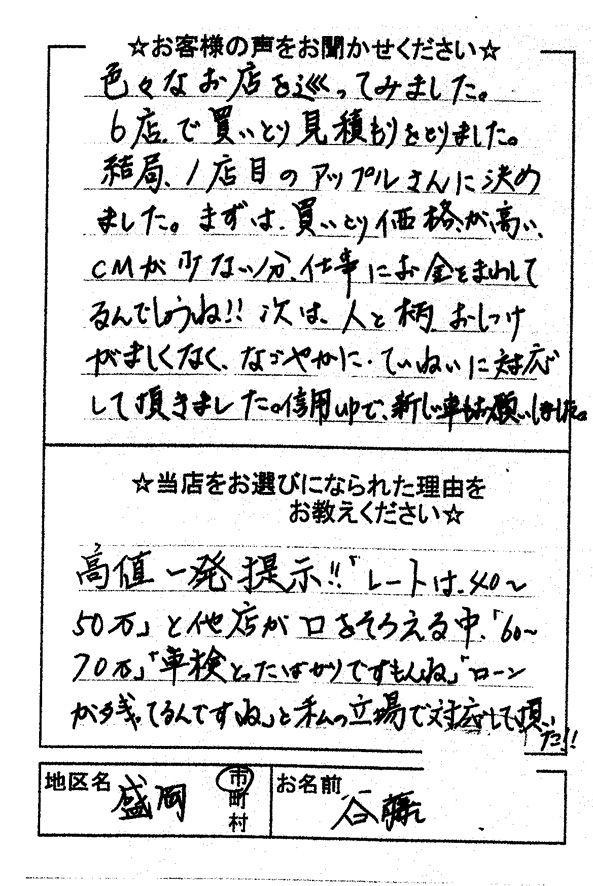 ☆お客様の声をお聞かせください☆
色々なお店を巡ってみました。
6店で買いとり見積もりをとりました。
結局、1店目のアップルさんに決め
ました。まずは、買いとり価格が高い、
CMが少ない分、仕事にお金をまわして
るんでしょうね!! 次は、人と柄 おしつけ
がましくなく、なごやかに・ていねいに対応
して頂きました。信用upで、新しい車もお願いしました。
☆当店をお選びになられた理由を
お教えください☆
高値一発提示!!「レートは、40〜
50万」と他店が口をそろえる中、「60〜
70万」「車検とったばかりですもんね」「ローン
が残ってるんですね」と私の立場で対応して頂い
た!!
地区名 盛岡 市町村 お名前